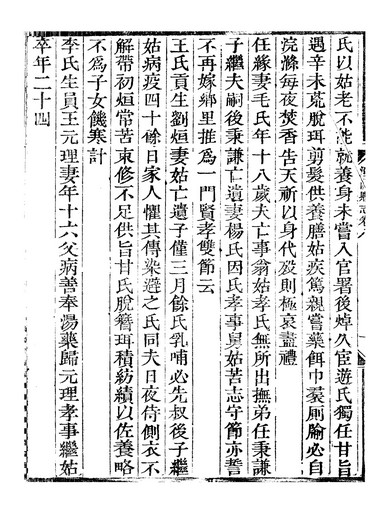 氏以姑老不能就養身未嘗入官署後焯久宦遊氏獨任甘旨
遇辛未荒脫珥剪髮供養膳姑疾篤親嘗藥餌巾裙厠牏必自
浣滌每夜焚香告天祈以身代歿則極哀盡禮
任緣妻毛氏年十八歲夫亡事翁姑孝氏無所出撫弟任秉謙
子繼夫嗣後秉謙亡遺妻楊氏因氏孝事舅姑苦志守節亦誓
不再嫁鄉里推為一門賢孝雙節云
王氏貢生劉烜妻姑亡遺子僅三月餘氏乳哺必先叔後子繼
姑病疫四十餘日家人懼其傳染避之氏同夫日夜侍側衣不
解帶初烜常苦束修不足供旨甘氏脫簪珥積紡績以佐養略
不為子女饑寒計
李氏生員王元理妻年十六父病善奉湯藥歸元理孝事繼姑
卒年二十四